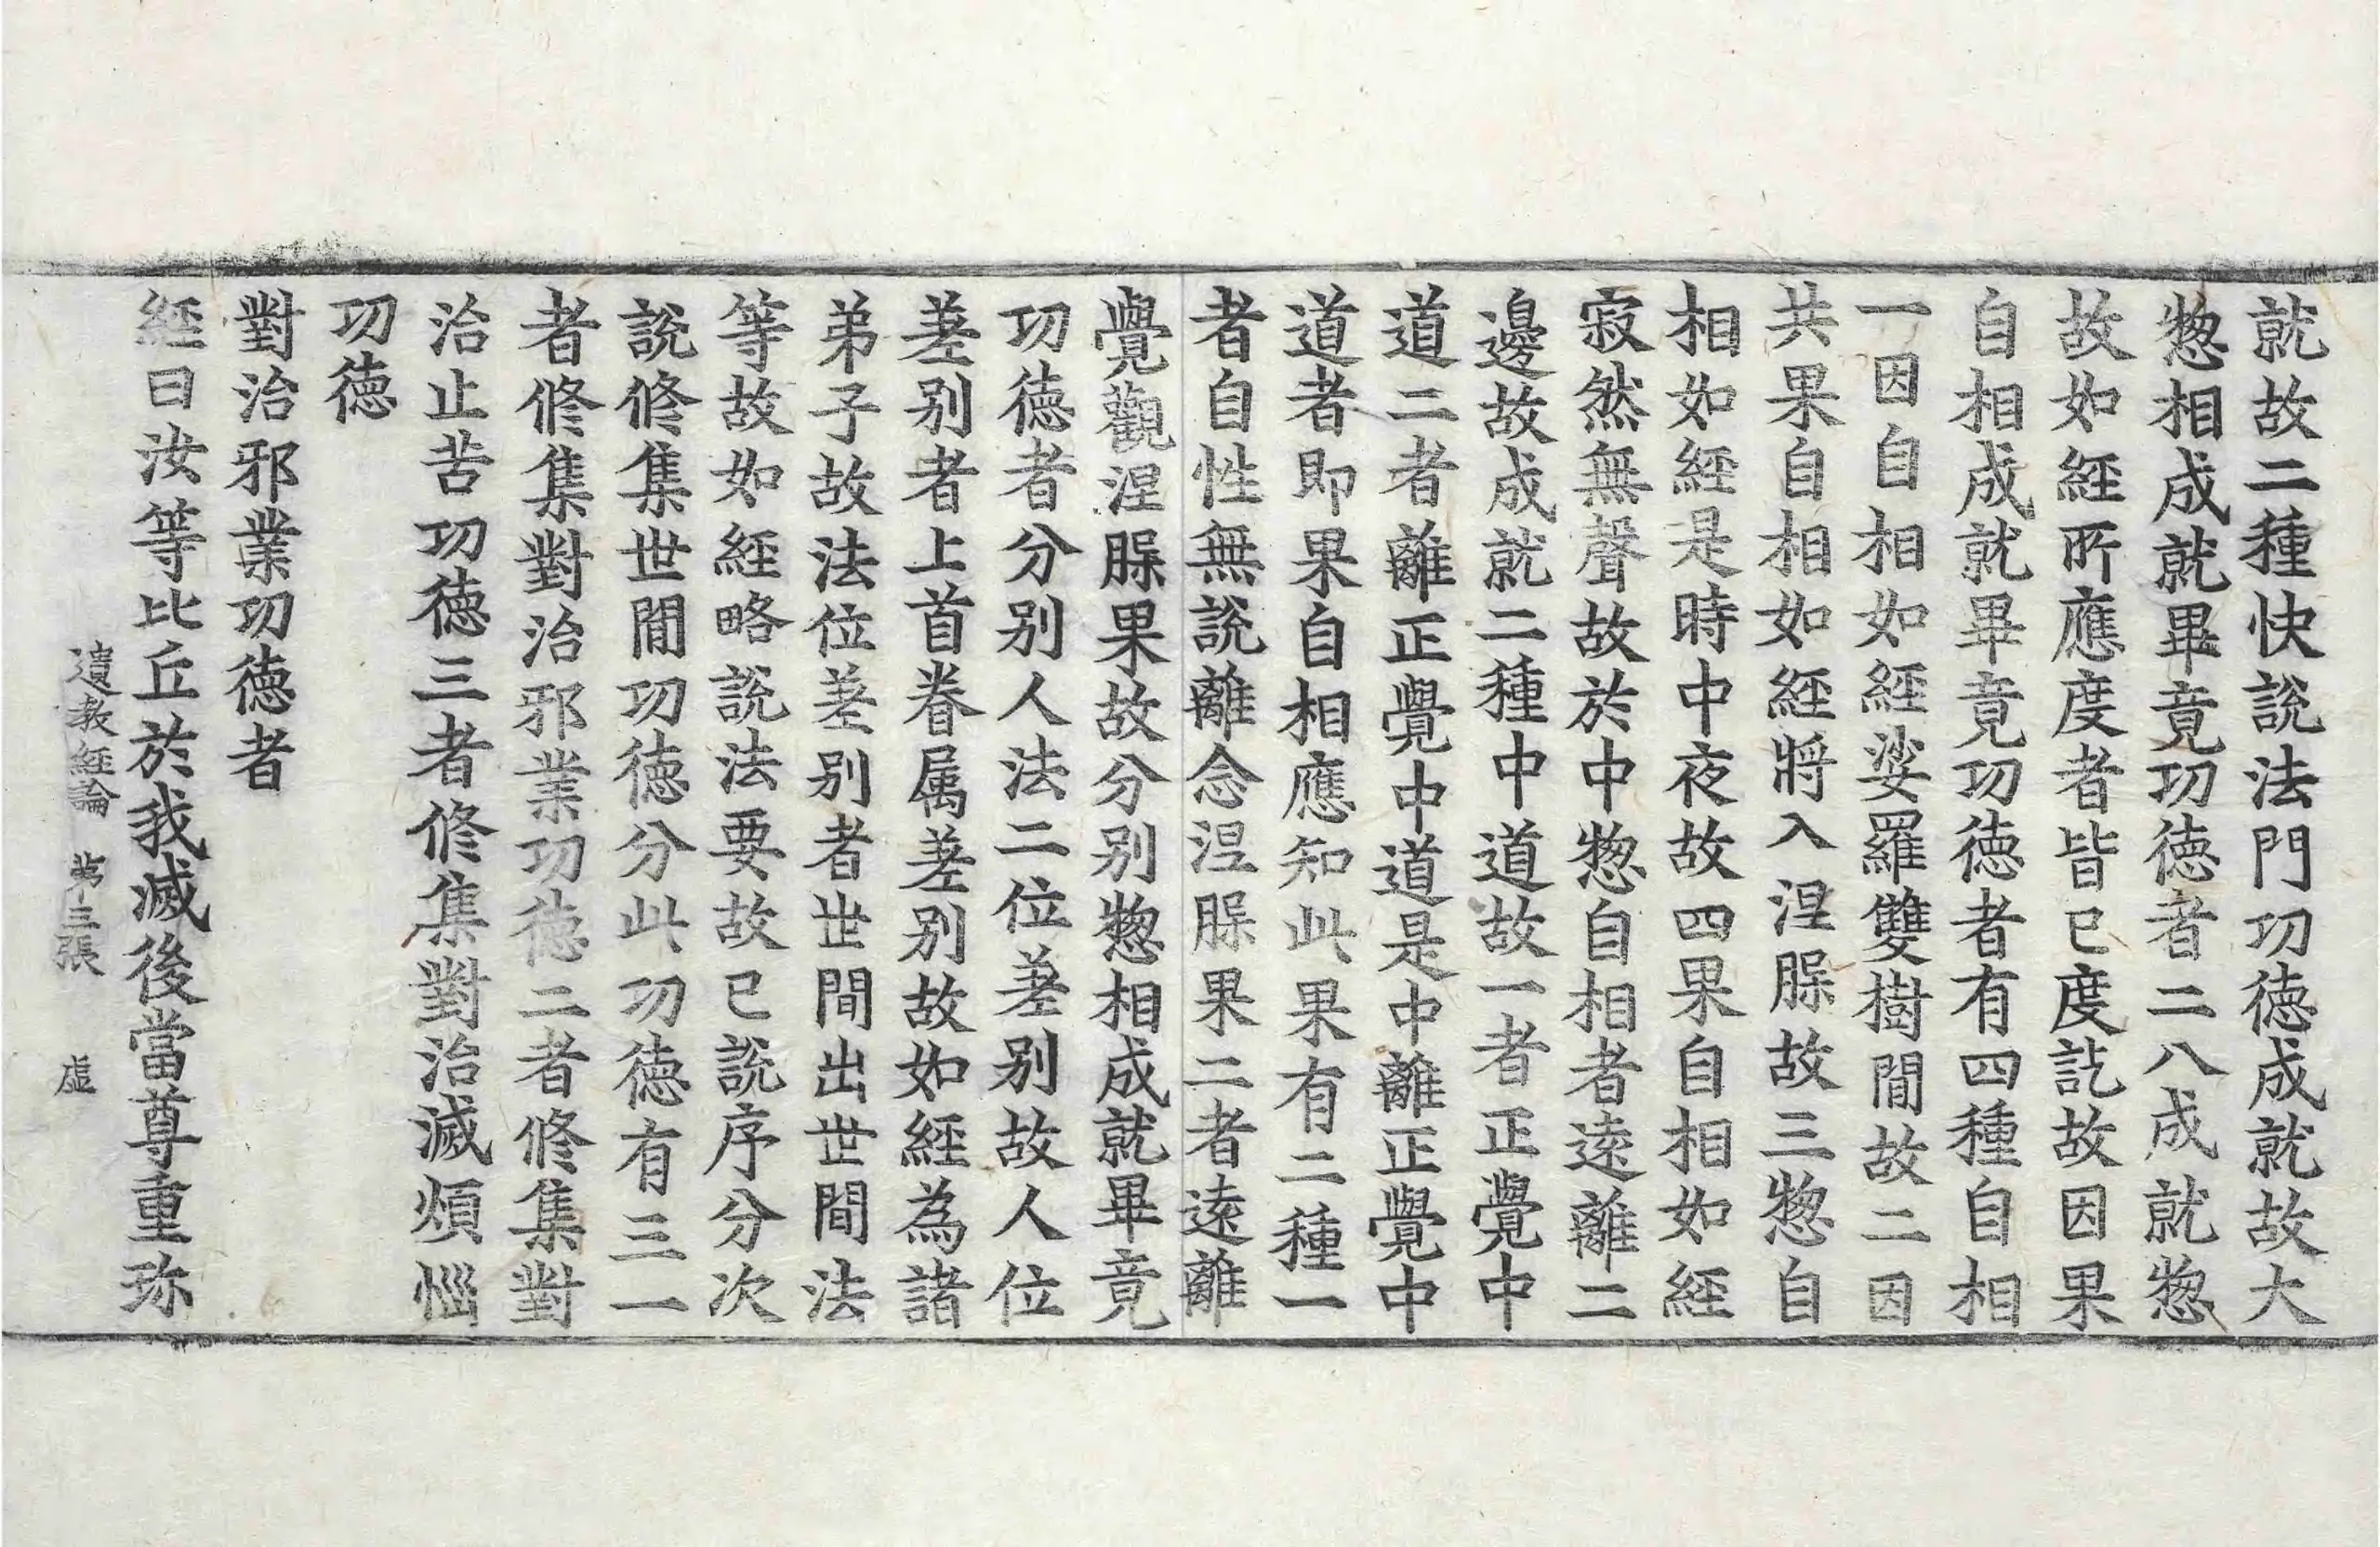 就故二種快說法門功徳成就故大
惣相成就畢竟功徳者二八成就惣
故如經所應度者皆已度訖故因果
自相成就畢竟功徳者有四種自相
一因自相如經娑羅雙樹間故二因
共果自相如經將入涅槃故三惣自
相如經是時中夜故四果自相如經
寂然無聲故於中惣自相者遠離二
邊故成就二種中道故一者正覺中
道二者離正覺中道是中離正覺中
道者即果自相應知此果有二種一
者自性無說離念涅槃果二者遠離
覺觀涅槃果故分別惣相成就畢竟
功徳者分別人法二位差別故人位
差別者上首眷属差別故如經為諸
弟子故法位差別者世間出世間法
等故如經略說法要故已說序分次
說修集世間功徳分此功徳有三一
者修集對治邪業功徳二者修集對
治止苦功徳三者修集對治滅煩惱
功徳
對治邪業功徳者
經曰汝等比丘於我滅後當尊重珎
遺教經論　苐三張　虛